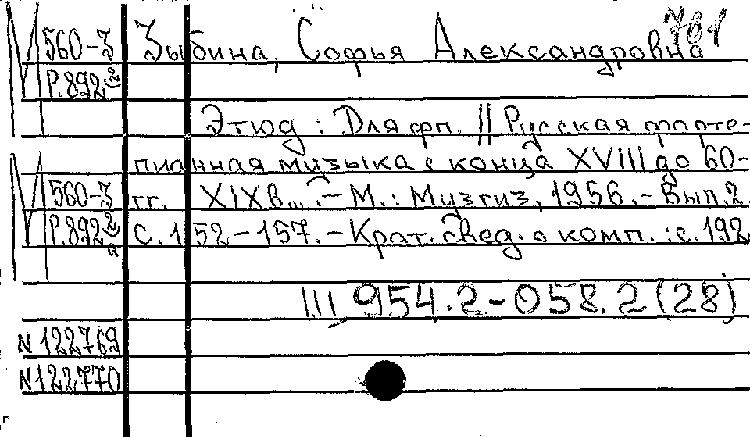 701
М 560-З Зыбина, Софья Александровна
Р.892
Этюд : Для фп. // Русская форте-
пианная музыка с конца XVIII до 60-
М 560-З гг. XIX в... . - М. : Музгиз, 1956. - Вып. 2.
Р.892 С. 152-157. - Крат. свед. о комп. : с. 192
III 954.2-058.2(28)
N 122769
N 122770